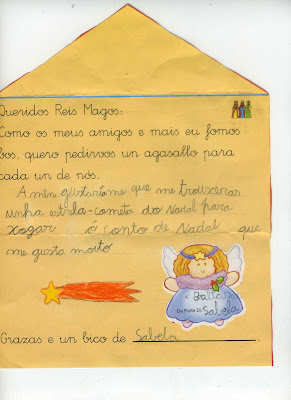 Queridos Reis Magos:
Como os meus amigos e mais eu fomos
bos, quero pedirvos un agasallo para
cada un de nós.
A min gustaríame que me trouxeras
unha estrela-cometa do Nadal para
xogar ó conto de Nadal que
me gusta moito
Baltasar
De Parte De Sabela
Grazas e un bico de Sabela